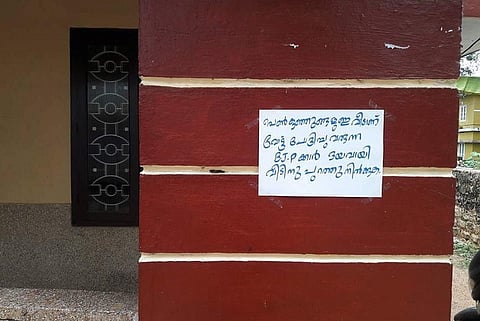 പെൺകുഞ്ഞുങ്ങളുള്ള വീടാണ്
വോട്ട് ചോദിച്ചു വരുന്ന
BJ.P ക്കാർ ദയവായി
വീടിനു പുറത്തു നിൽക്കുക